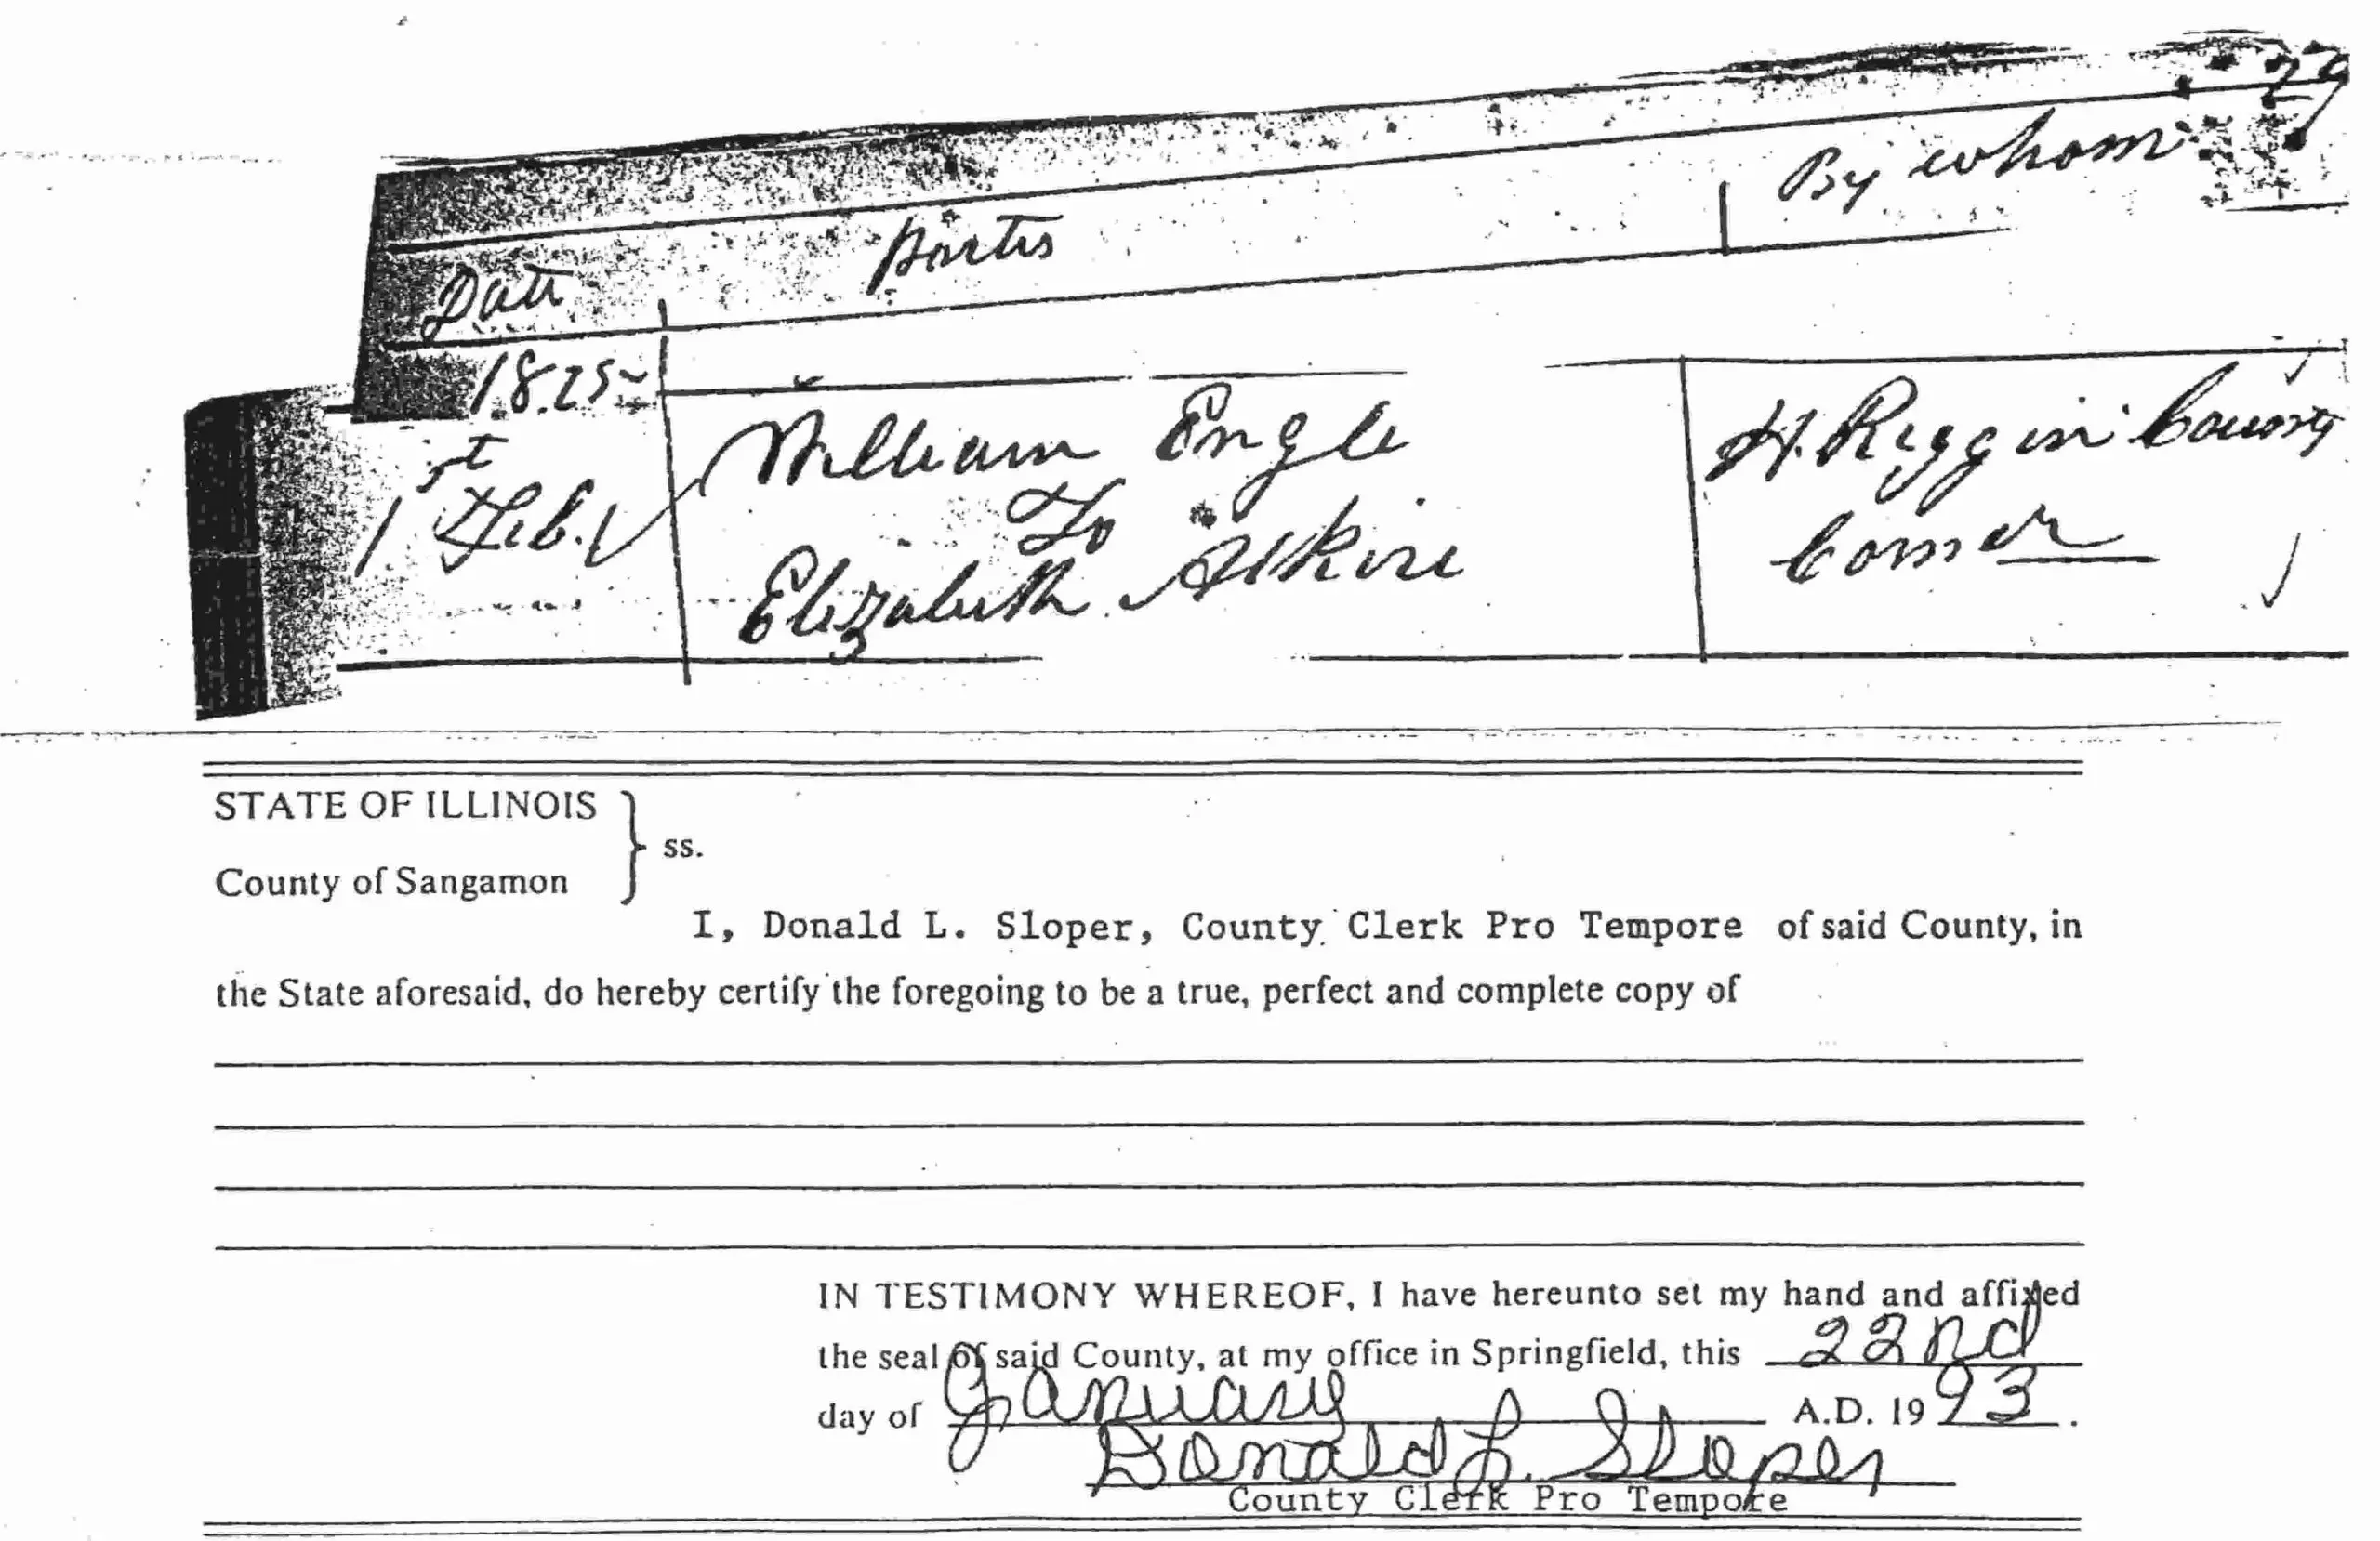 29
Date parties By whom
1825
1st Feb. William Engle H. Riggin County
To
Elizabeth Alkire Comer
STATE OF ILLINOIS
ss.
County of Sangamon
I, Donald L. Sloper, County Clerk Pro Tempore of said County, in
the State aforesaid, do hereby certify the foregoing to be a true, perfect and complete copy of
IN TESTIMONY WHEREOF, I have hereunto set my hand and affixed
the seal of said County, at my office in Springfield, this 22nd
day of January A.D. 1993.
Donald L. Sloper
County Clerk Pro Tempore